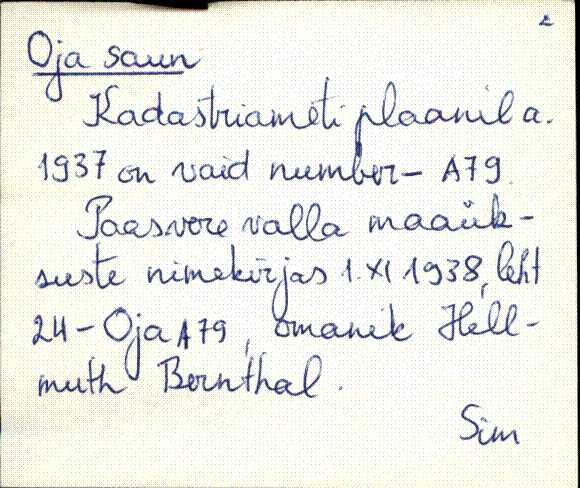 2
Oja saun
Kadastriameti plaanil a.
1937 on vaid number – A79.
Paasvere valla maaük-
suste nimekirjas 1. XI 1938, leht
24 – Oja A79, omanik Hell-
muth Bernthal.
Sim